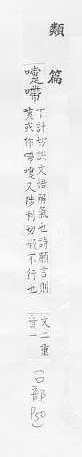 類篇
嚏
丁計切說文悟解氣也詩願言則
嚏或作嚏又陟利切不行也
文二重
音一
(口部 P50)